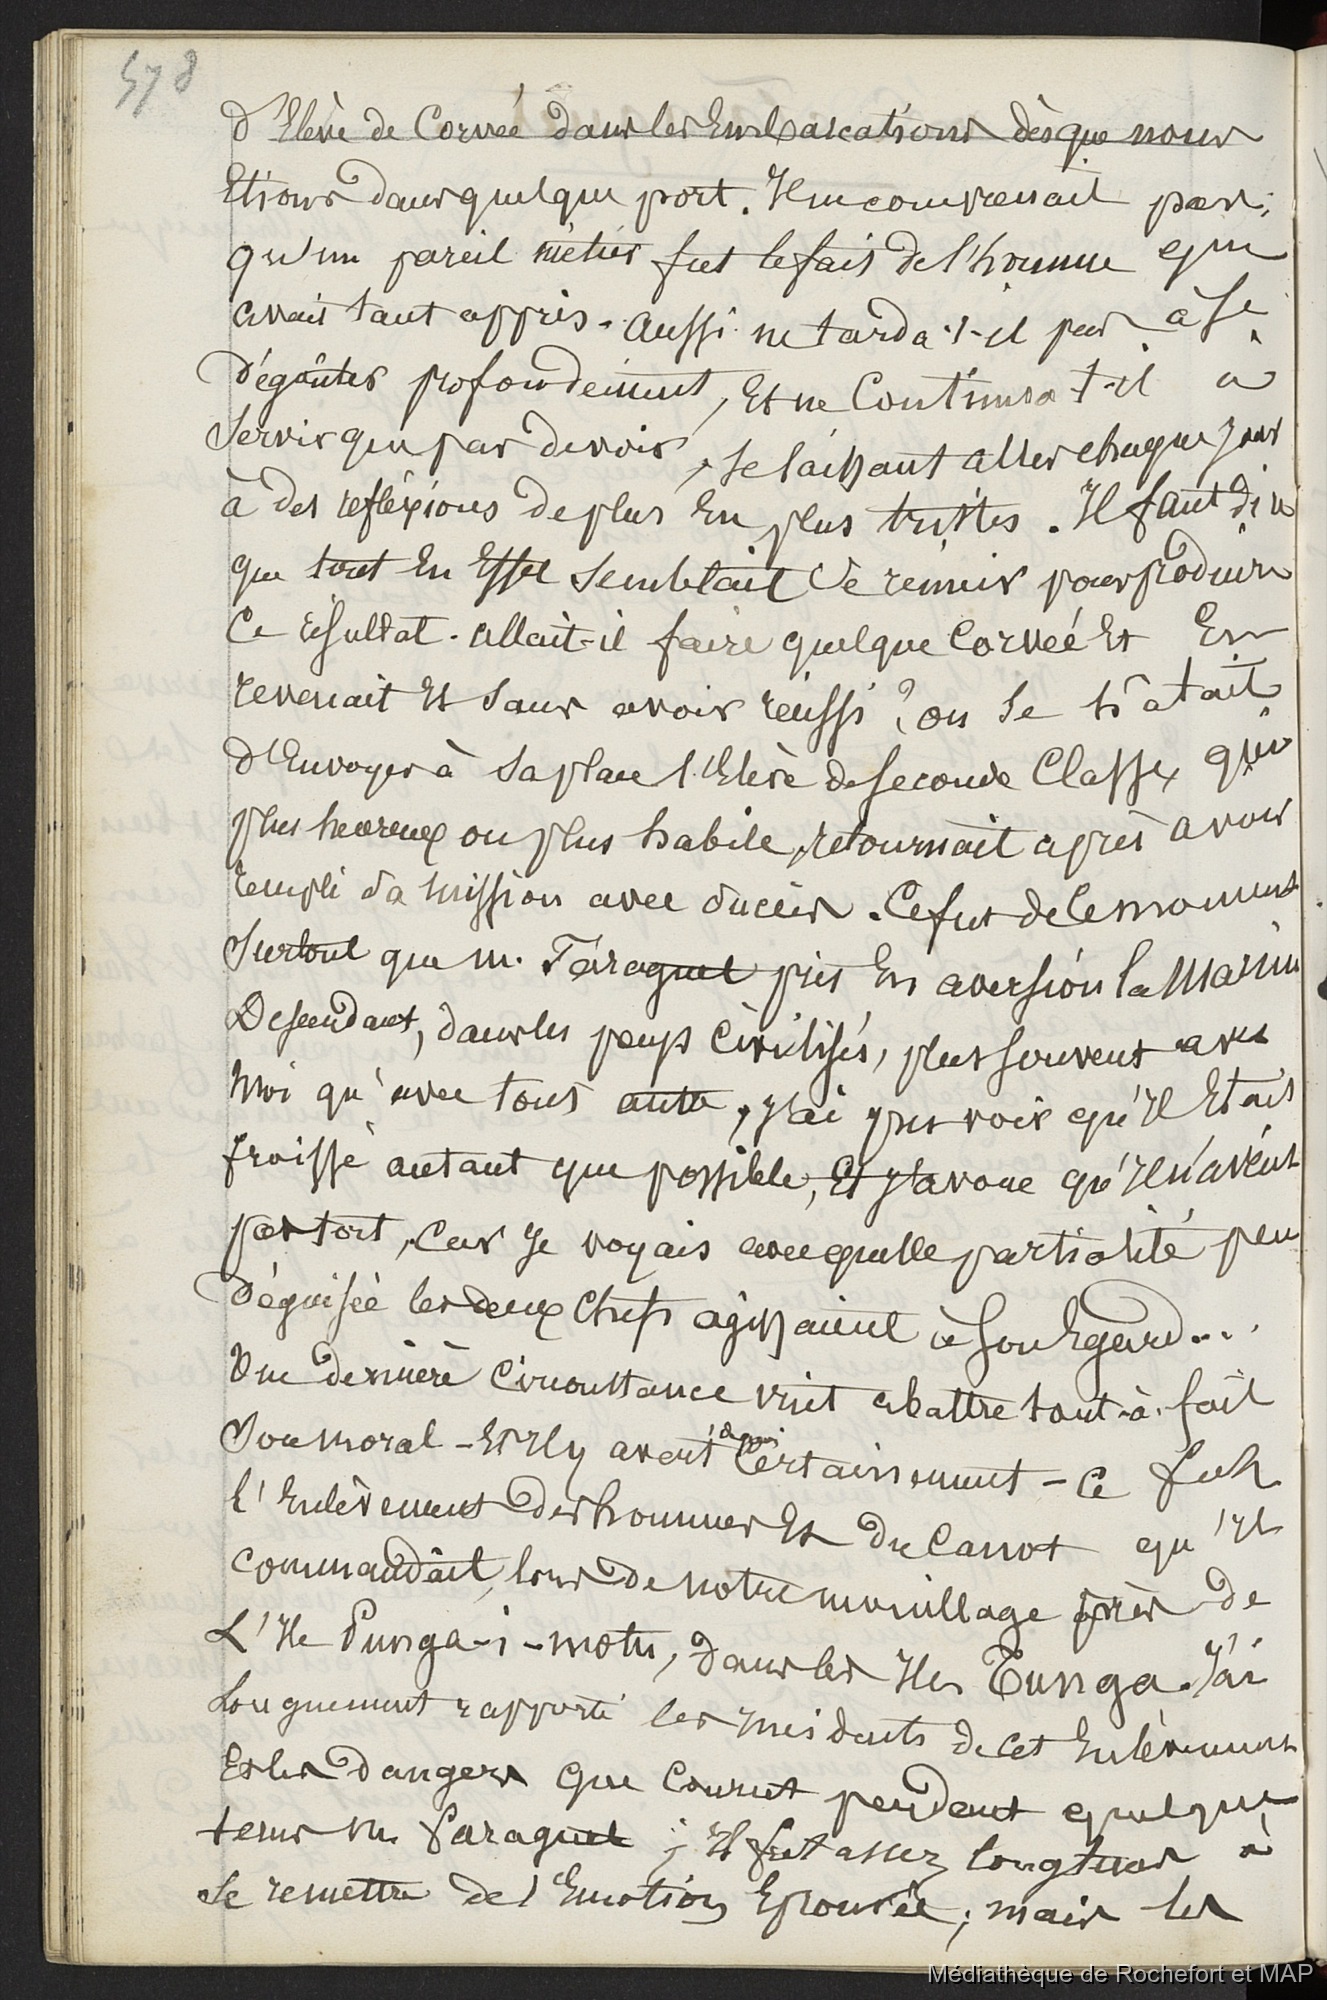 578
d'Elève de Corvée dans les Embarcations dès que nous
Etions dans quelque port. Il ne comprenait pas,
qu'un pareil métier fut le fait de l'homme qui
avait tant appris. aussi ne tarda-t-il pas à se
dégoûter profondément, Et ne Continua t-il à
Servir que par devoir, se laissant aller chaque jour
à des refléxions de plus En plus tristes. Il faut dire
que tout En Effet Semblait Se réunir pour produire
Ce résultat. allait-il faire quelque Corvée Et En
revenait Et Sans avoir réussi? on Se hâtait
d'Envoyer à Sa place l'Elève de Seconde Classe, qui
plus heureux ou plus habile, retournait après avoir
rempli Sa mission avec Succès. Ce fut de Ce moment
Surtout que M. Faraguet prit En aversion la Marine
Descendant, dans les pays Civilisés, plus souvent avec
moi qu'avec tout autre, j'ai pu voir qu'Il Etait
froissé autant que possible, Et j'avoue qu'Il n'avait
pas tort, Car Je voyais avec quelle partialité peu
déguisée les deux Chefs agissaient à Son Egard...
Une dernière Circonstance vint abattre tout-à-fait
Son moral - Et Il y avait de quoi Certainement - Ce fut
l'Enlèvement des hommes Et du Canot qu'Il
commandait, lors de notre mouillage près de
L'Ile Punga-i-motu, dans les Iles Tunga. J'ai
Longuement rapporté les Incidents de cet Enlèvement
Et les dangers que Courut pendant quelque
tems M. Faraguet; Il fut assez longtems à
Se remettre de l'Emotion Eprouvée; mais les
Médiathèque de Rochefort et MAP